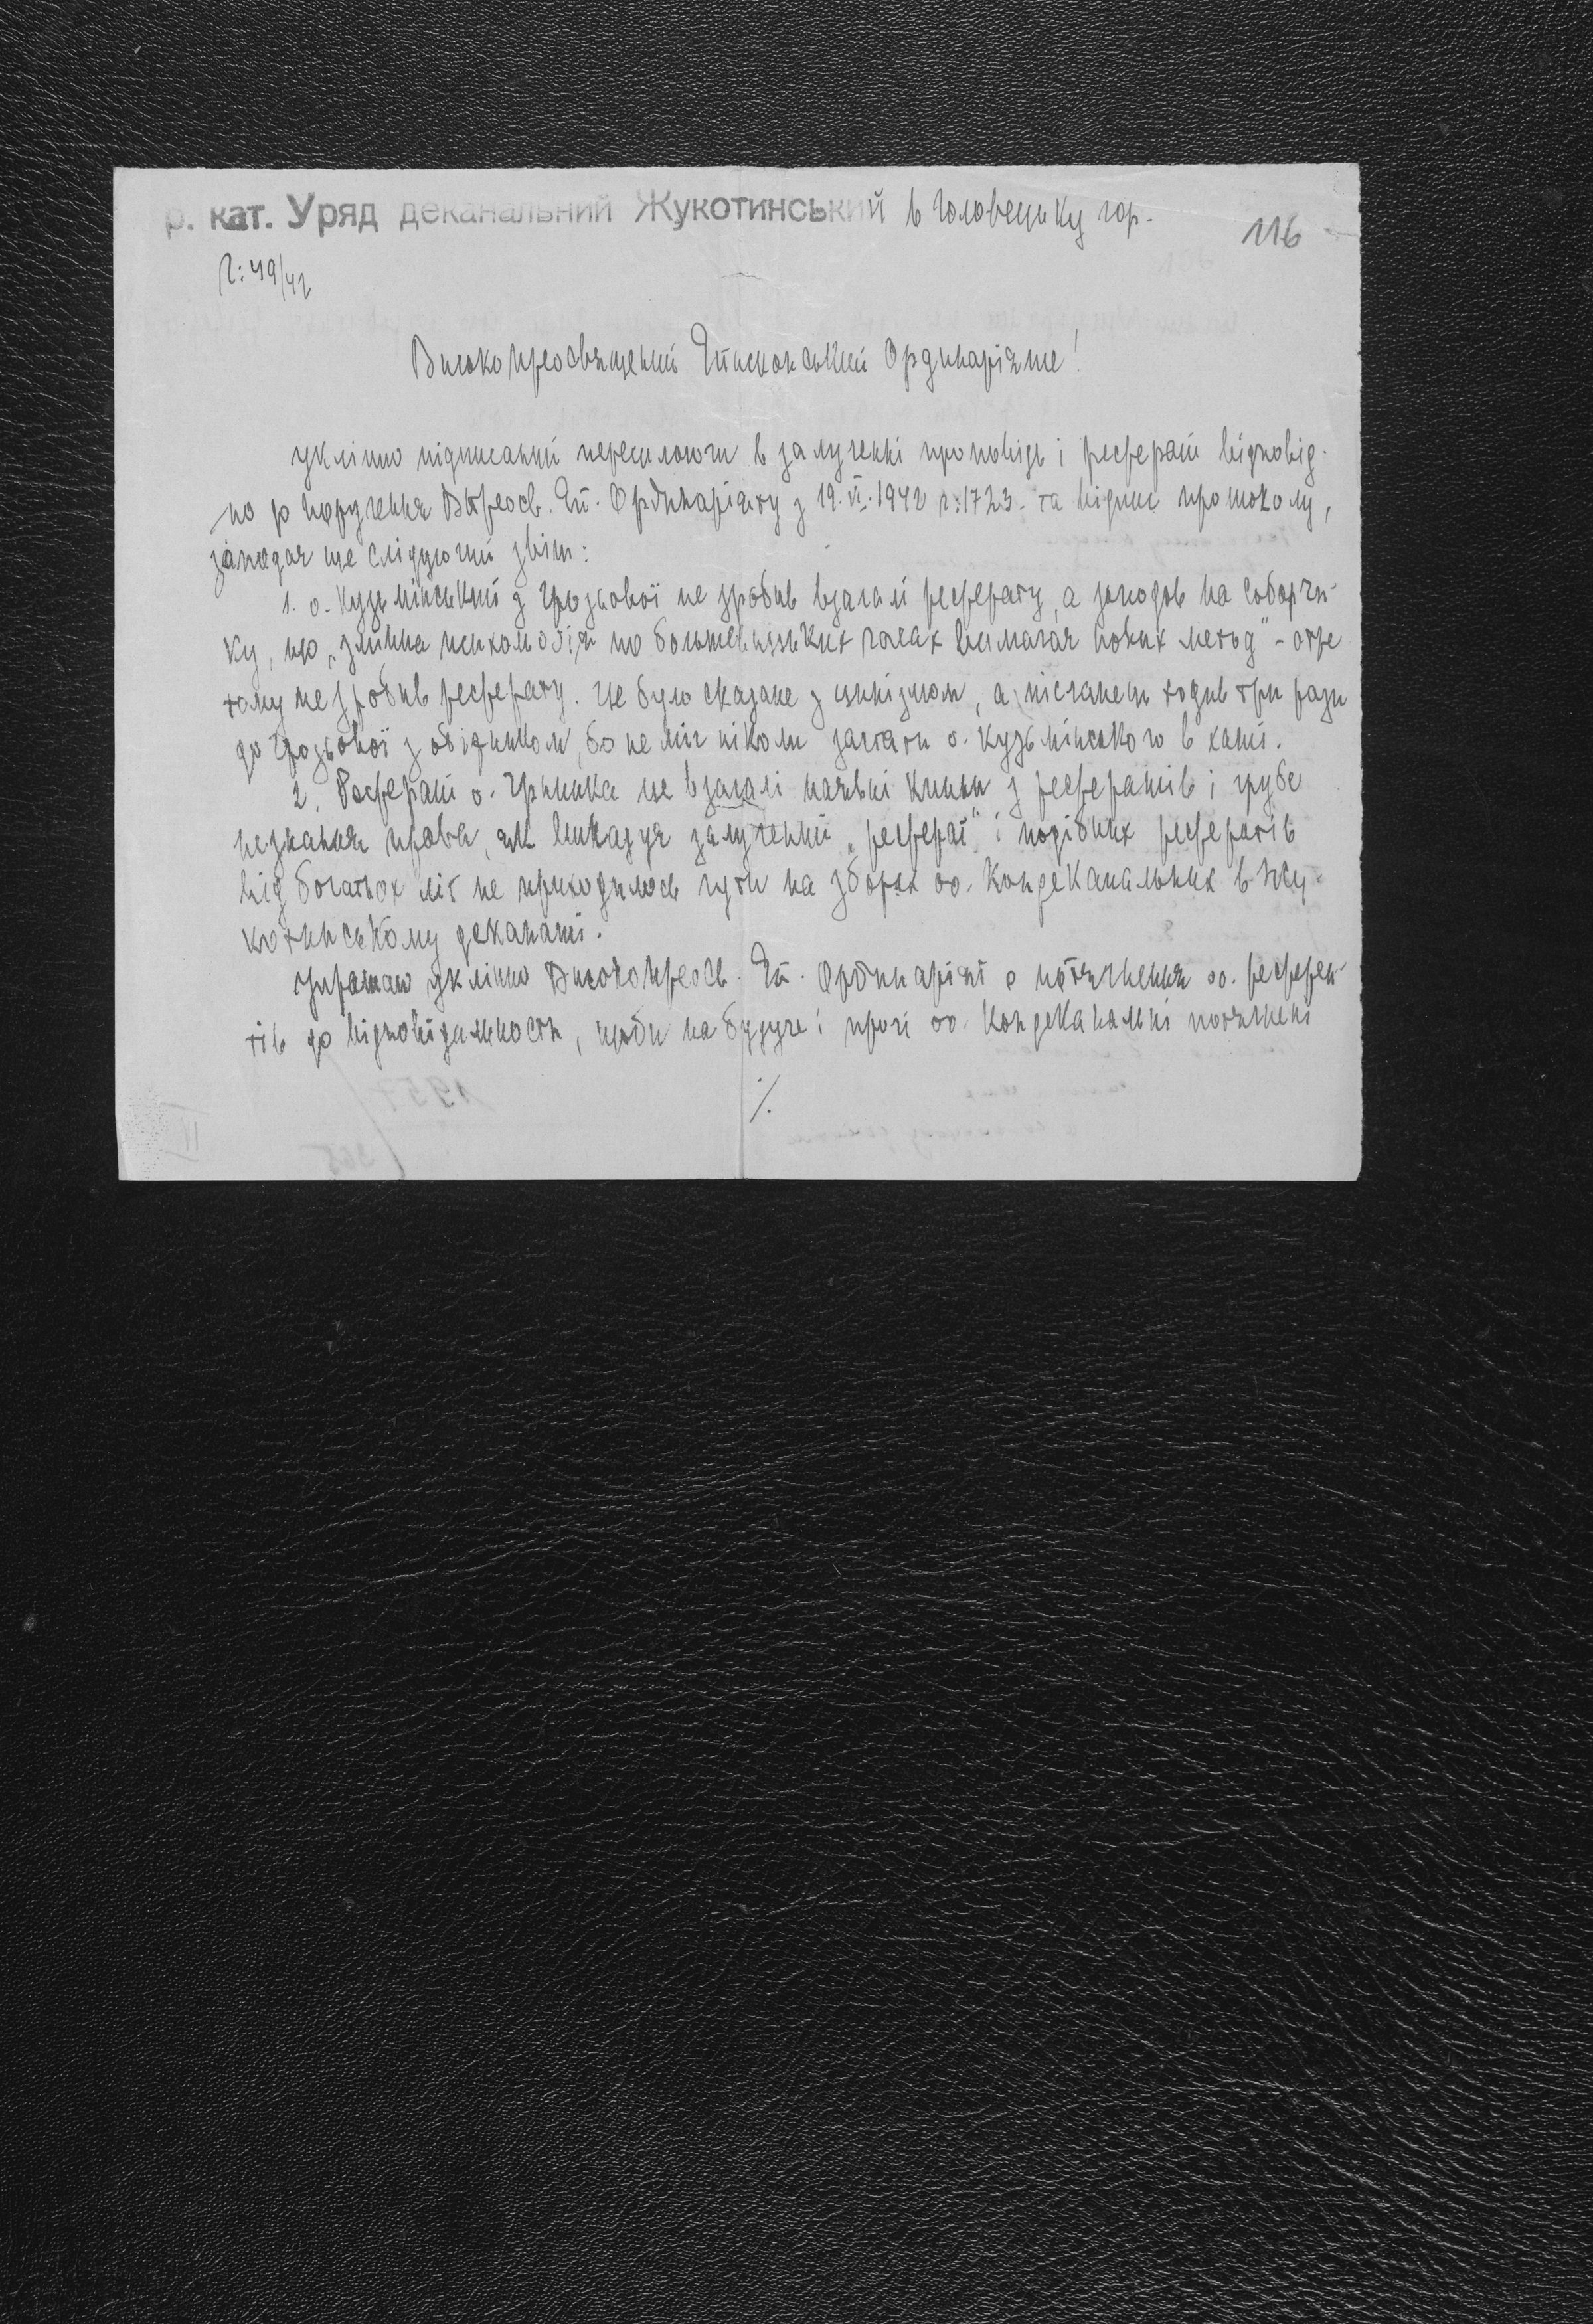 р. кат. Уряд деканальний Жукотинський в Головецьку гор.
116
Ч: 49/42
Високопреосвященний Єпископський Ординаріяте!
Уклінно підписаний пересилаючи в залученні проповідь і реферати відповід-
но до поручення ВПреосв. Еп. Ординаріяту з 19.VI.1942 ч: 1723. та відпис протоколу,
западая ще слідуючий звіт:
1. о. Кузьмінський з Грозьової не зробив взагалі реферату, а заподав на соборчи-
ку, що „змінна психольогія по большевицьких часах вимагає нових метод" - отже
тому не зробив реферату. Це було сказане з цинізмом, а післанець ходив три рази
до Грозьової з обіжником, бо не міг ніколи застати о. Кузьмінського в хаті.
2. Реферат о. Гриника це взагалі наявні кпини з рефератів і грубе
незнання права, як виказує залучений „реферат" і подібних рефератів
від богатьох літ не приходилось чути на зборах оо. Кондеканальних в Жу-
котинському деканаті.
Упрашаю уклінно Високопреосв. Еп. Ординаріят о потягнення оо. референ-
тів до відповідальности, щоби на будуче і прочі оо. Кондеканальні потягнені
./.